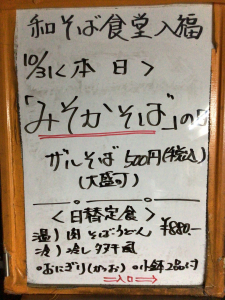 和そば食堂入福
10/31<本日>
「みそかそば」の日
ザルそば 500円(税込)
(大盛可)
<日替定食>
温) 肉そばうどん ¥880.-
冷) 冷しタヌキ風
・おにぎり(かつお) ・小鉢2品付
入口